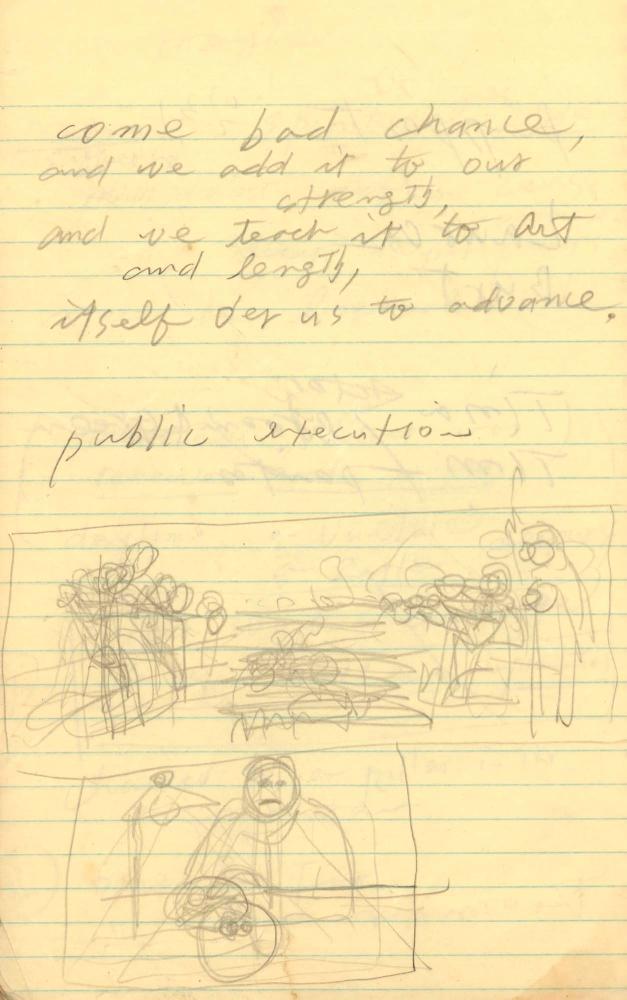 come bad chance,
and we add it to our
strength,
and we teach it to art
and length,
itself o'er us to advance.
public execution